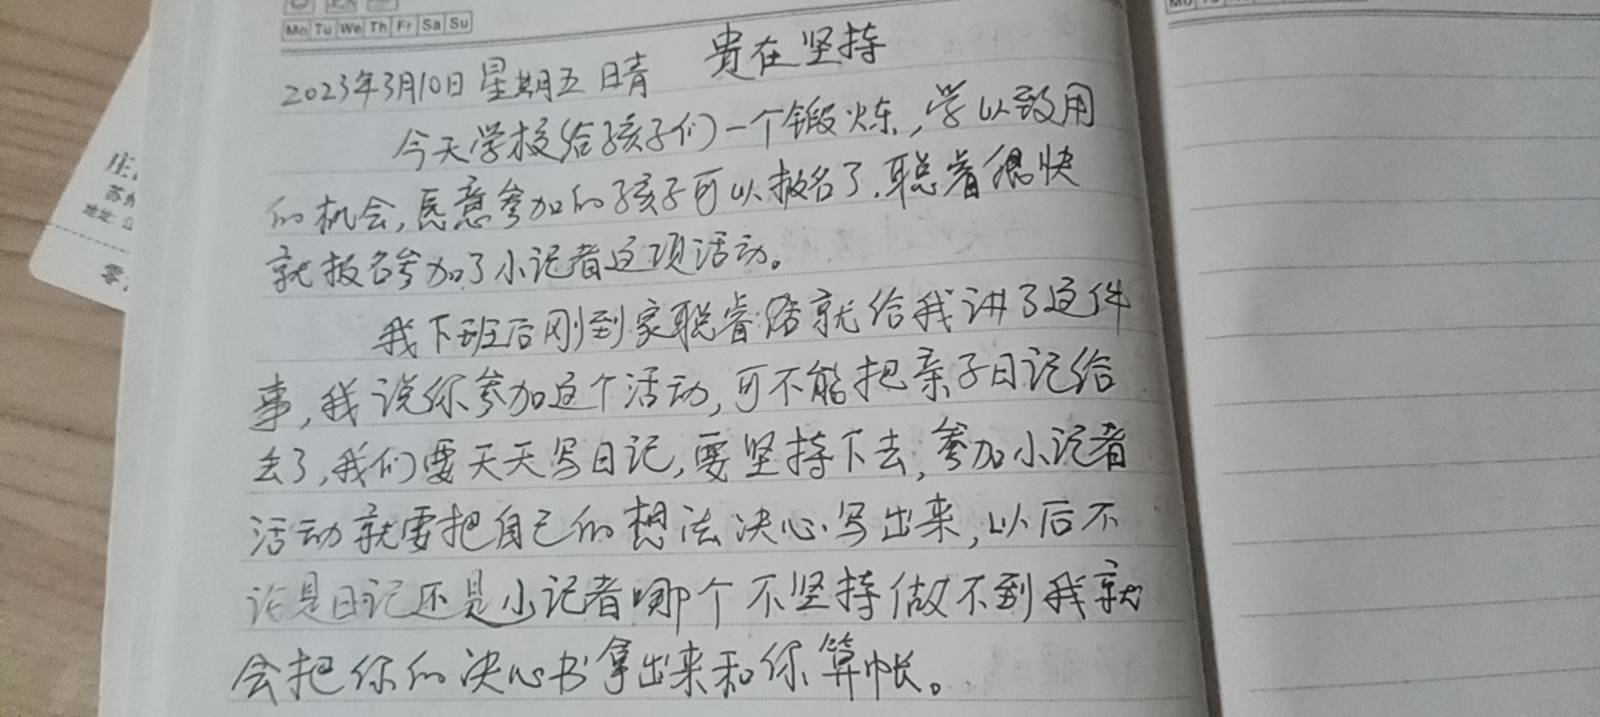 Mo Tu We Th Fr Sa Su
2023年3月10日 星期五 晴 贵在坚持
今天学校给孩子们一个锻炼,学以致用
的机会,愿意参加的孩子可以报名了.聪睿很快
就报名参加了小记者这项活动。
我下班后刚到家聪睿就给我讲了这件
事,我说你参加这个活动,可不能把亲子日记给
丢了,我们要天天写日记,要坚持下去,参加小记者
活动就要把自己的想法决心写出来,以后不
论是日记还是小记者哪个不坚持做不到我就
会把你的决心书拿出来和你算帐。
庄
苏州
地址:
零